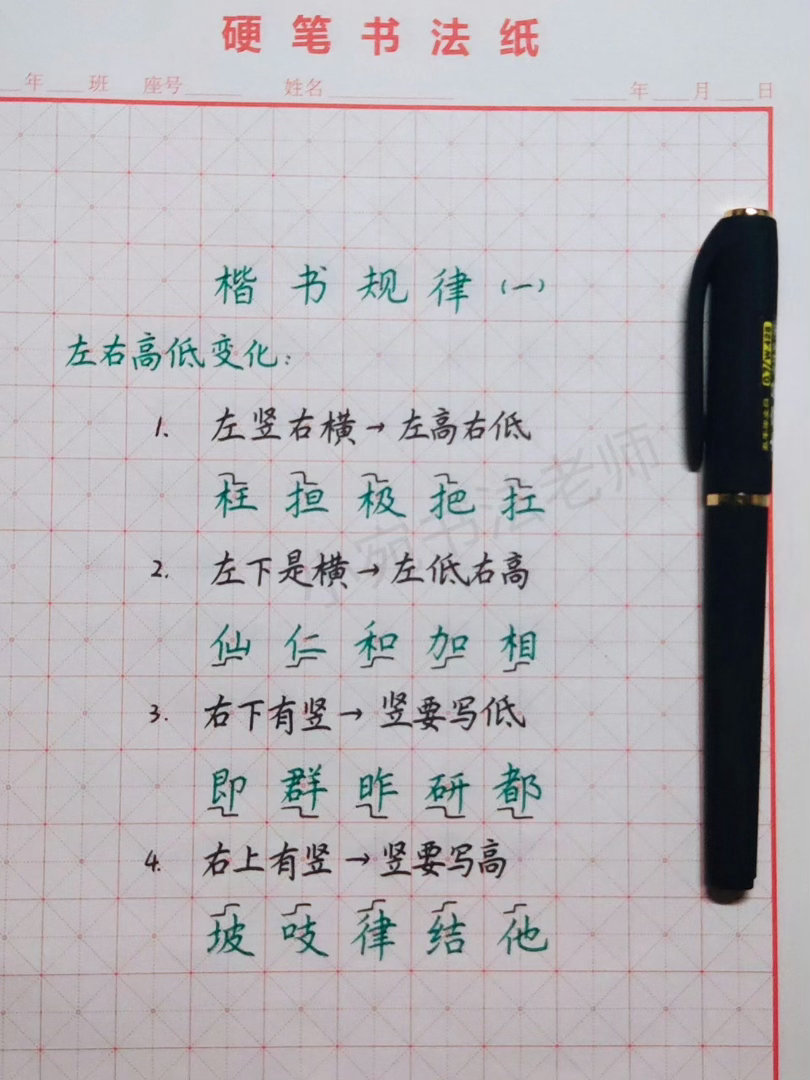 硬笔书法纸
年 班 座号 姓名 年 月 日
楷书规律(一)
左右高低变化:
1. 左竖右横→左高右低
枉 担 极 把 扛
2. 左下是横→左低右高
仙 仁 和 加 相
3. 右下有竖→竖要写低
即 群 昨 研 都
4. 右上有竖→竖要写高
坡 吱 律 结 他
宛书法老师